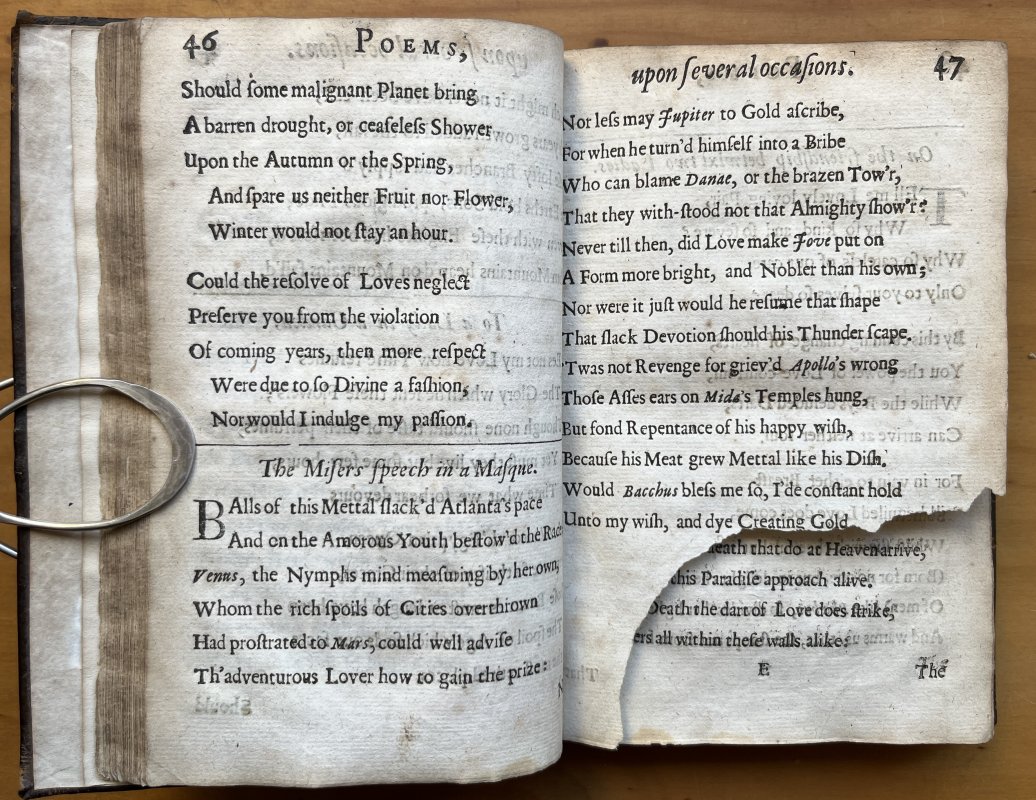 46 POEMS,
Should ſome malignant Planet bring
A barren drought, or ceaſeleſs Shower
Upon the Autumn or the Spring,
And ſpare us neither Fruit nor Flower,
Winter would not ſtay an hour.
Could the reſolve of Loves neglect
Preſerve you from the violation
Of coming years, then more reſpect
Were due to ſo Divine a faſhion,
Nor would I indulge my paſſion.
The Miſers ſpeech in a Maſque.
BAlls of this Mettal ſlack'd Atlanta's pace
And on the Amorous Youth beſtow'd the Race
Venus, the Nymphs mind meaſuring by her own,
Whom the rich ſpoils of Cities overthrown
Had proſtrated to Mars, could well adviſe
Th'adventurous Lover how to gain the prize:
N
upon ſeveral occaſions. 47
Nor leſs may Jupiter to Gold aſcribe,
For when he turn'd himſelf into a Bribe
Who can blame Danae, or the brazen Tow'r,
That they with-ſtood not that Almighty ſhow'r?
Never till then, did Love make Jove put on
A Form more bright, and Nobler than his own;
Nor were it juſt would he reſume that ſhape
That ſlack Devotion ſhould his Thunder ſcape.
'Twas not Revenge for griev'd Apollo's wrong
Thoſe Aſſes ears on Mida's Temples hung,
But fond Repentance of his happy wiſh,
Becauſe his Meat grew Mettal like his Diſh.
Would Bacchus bleſs me ſo, I'de conſtant hold
Unto my wiſh, and dye Creating Gold
eath that do at Heaven arrive,
this Paradiſe approach alive.
Death the dart of Love does ſtrike,
ers all within theſe walls alike:
E The